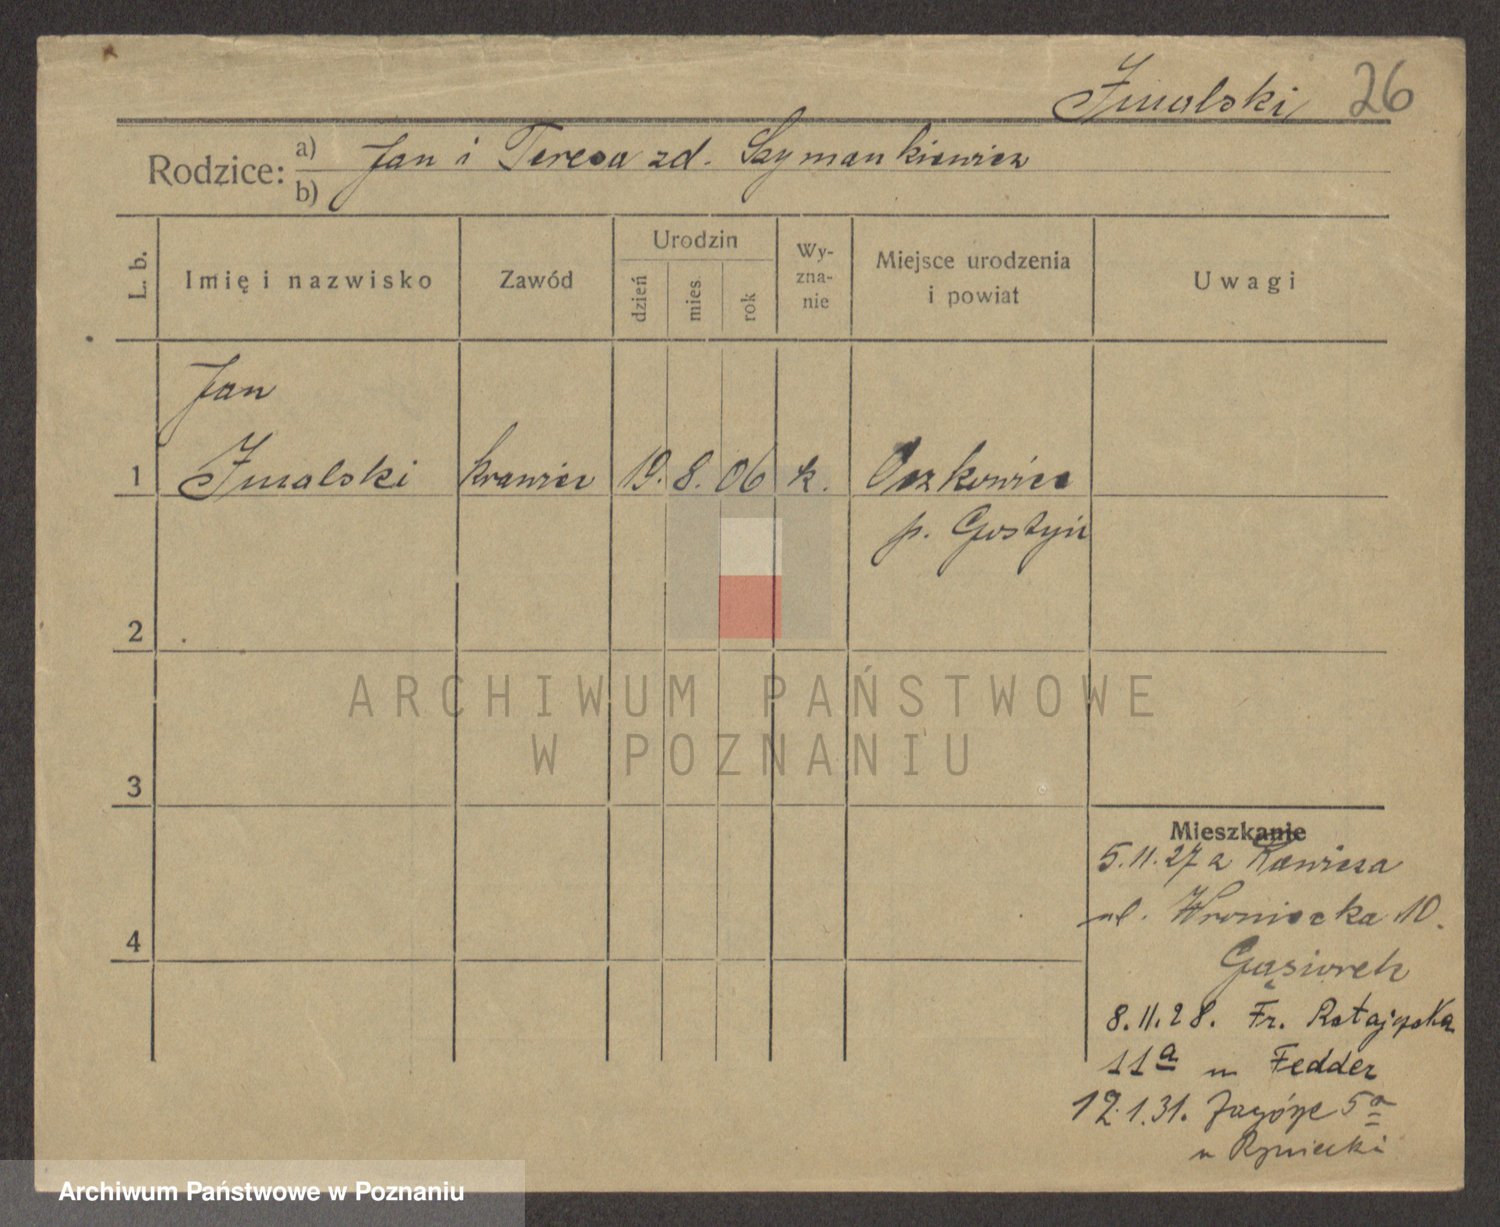 Żmalski 26
Rodzice:
a) Jan i Teresa zd. Szymankiewicz
b)
L. b.
Imię i nazwisko
Zawód
Urodzin
dzień
mies
rok
Wy-
zna-
nie
Miejsce urodzenia
i powiat
Uwagi
Jan
1 Żmalski krawiec 19. 8. 06 k. Oczkowice
p. Gostyń
2
3
4
ARCHIWUM PAŃSTWOWE
W POZNANIU
Mieszkanie
5.11.27 z Rawicza
ul. Wroniecka 10.
Gąsiorek
8.11.28. Fr. Ratajczaka
11a u Fedder
12.1.31. Zagórze 5a
u Ryniecki
Archiwum Państwowe w Poznaniu